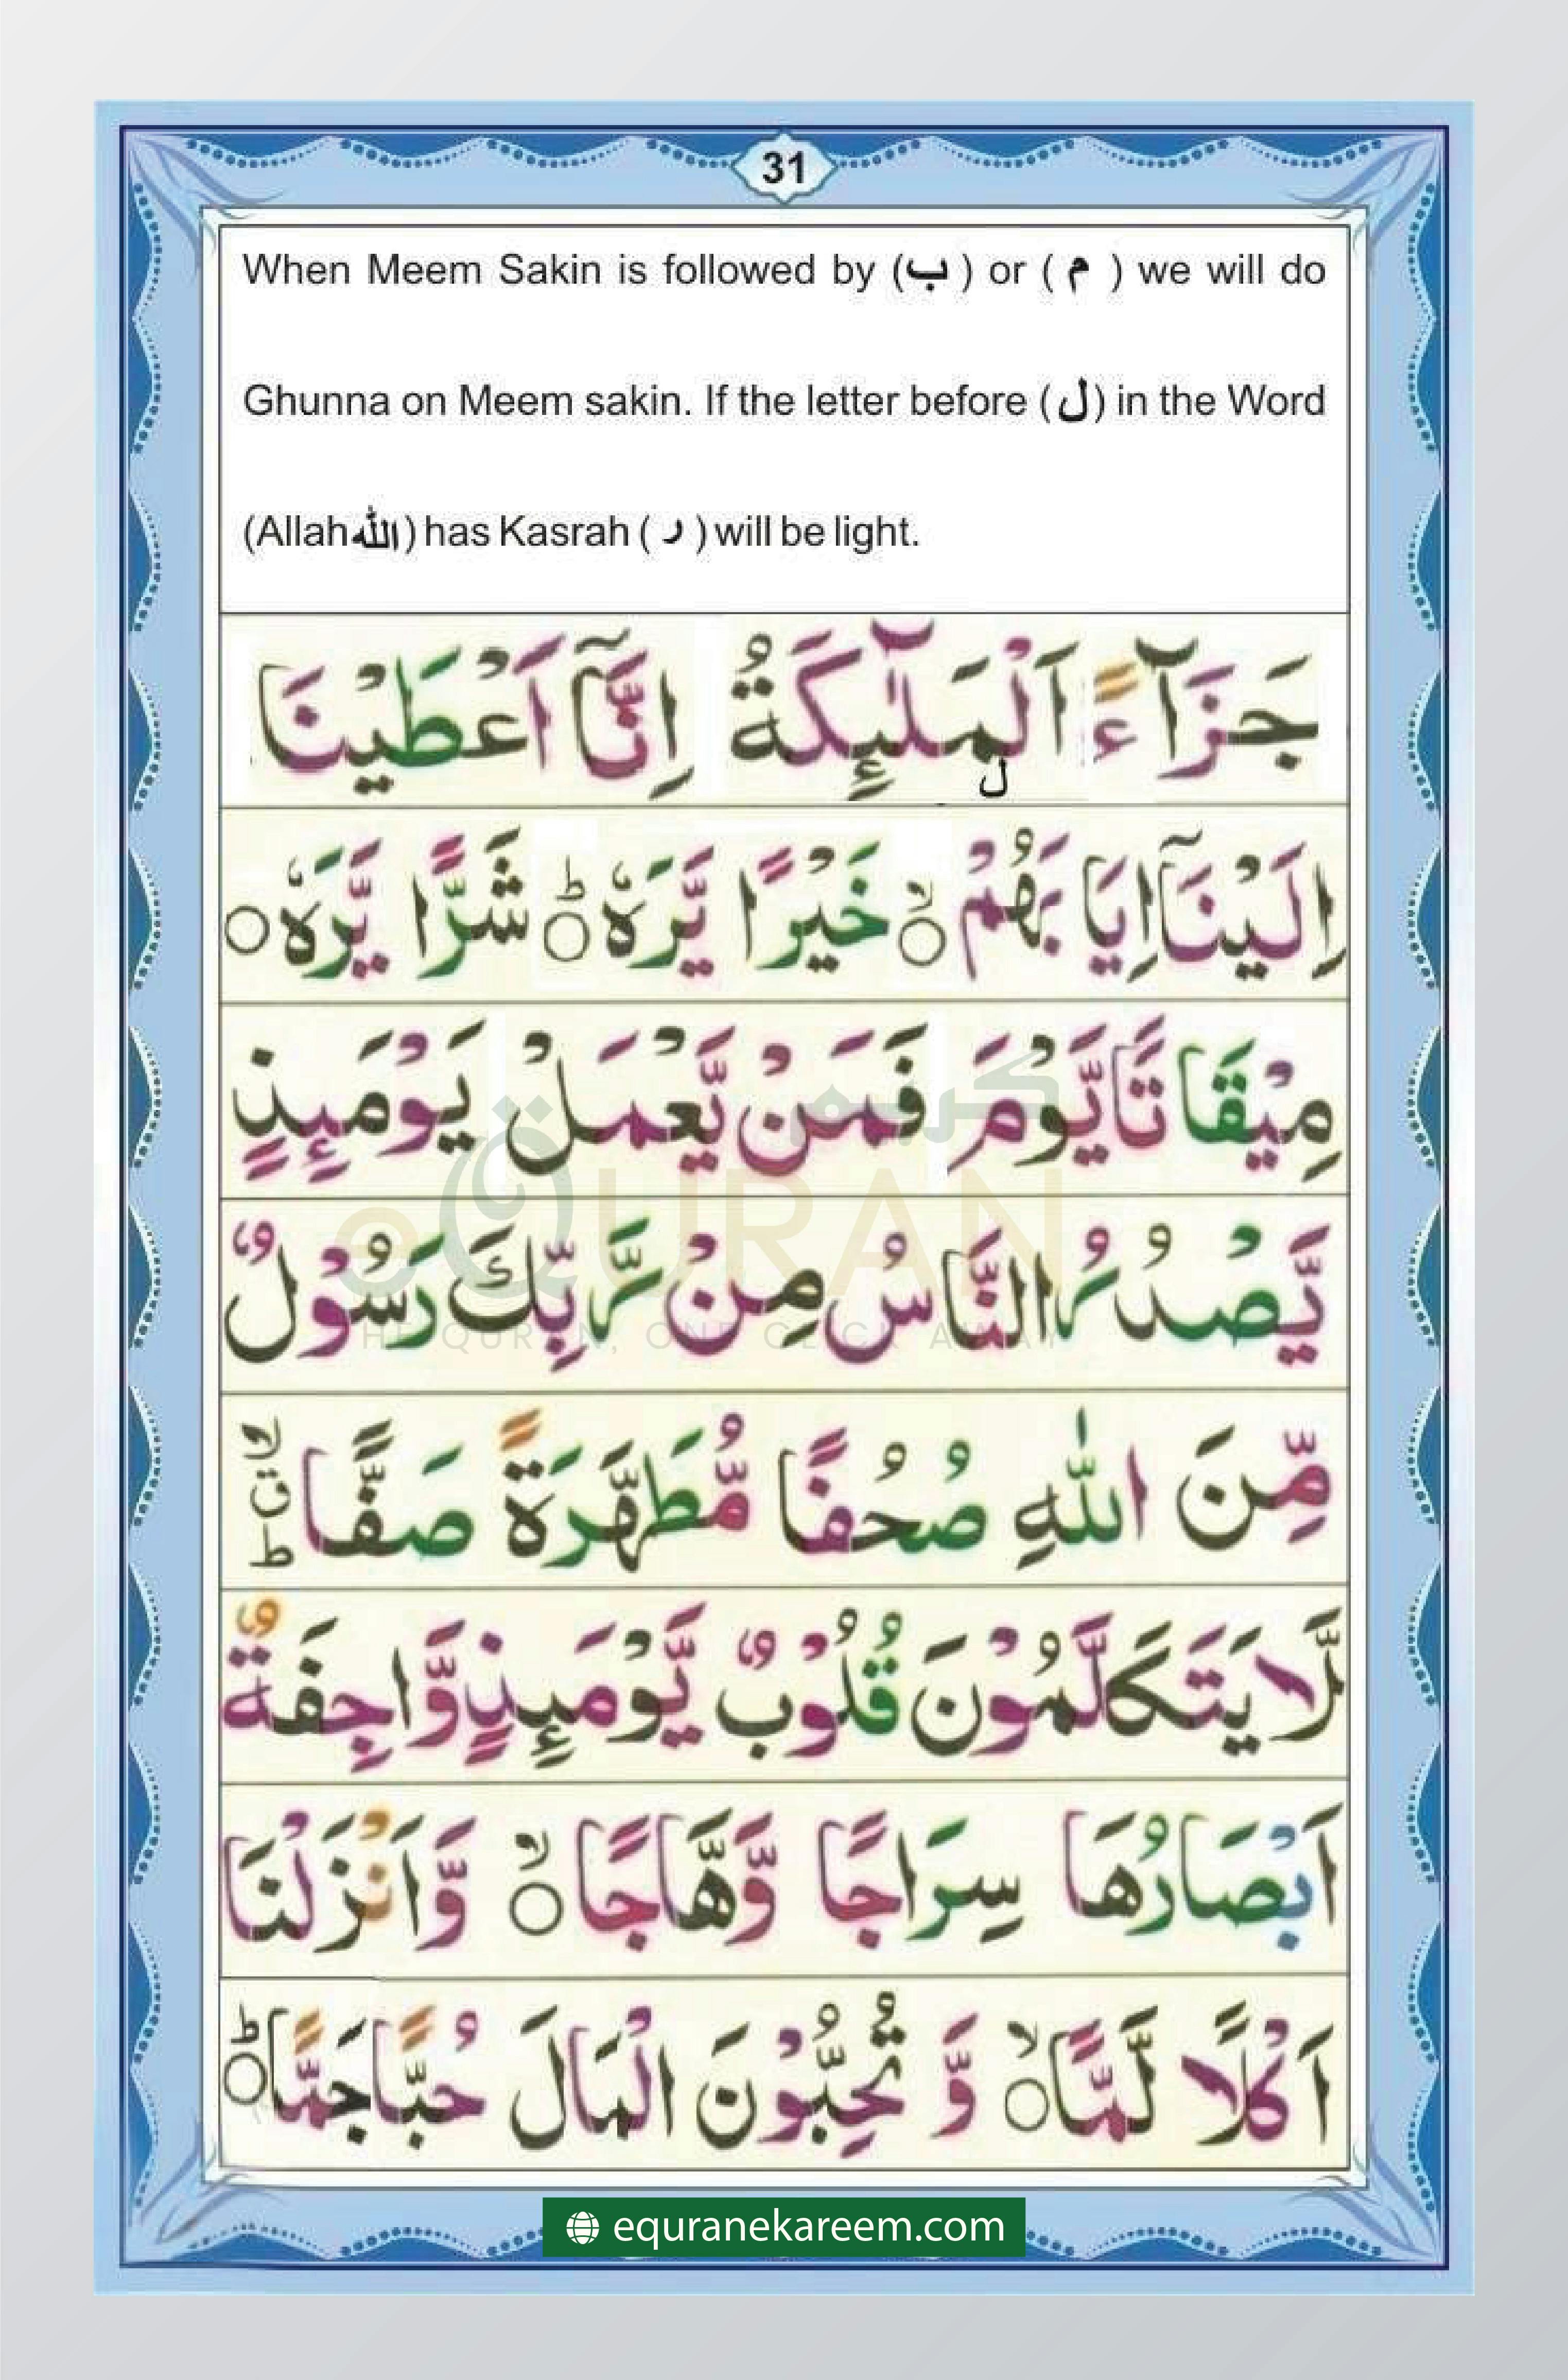 31
When Meem Sakin is followed by (ب) or (م) we will do
Ghunna on Meem sakin. If the letter before (ل) in the Word
(Allah الله) has Kasrah (ر) will be light.
جَزَآءً اَلْمَلٰٓئِكَةُ اِنَّآ اَعْطَيْنَا
ل
اِلَيْنَآ اِيَا بَهُمْ ۙ خَيْرًا يَّرَهٗ ؕ شَرًّا يَّرَهٗ ○
مِيْقَا تًا يَّوْمَ فَمَنْ يَّعْمَلْ يَوْمَئِذٍ
يَّصْدُرُ النَّاسُ مِنْ رَّبِّكَ رَسُوْلٌ
مِّنَ اللّٰهِ صُحُفًا مُّطَهَّرَةً صَفًّا ۙ ق ط
لَّا يَتَكَلَّمُوْنَ قُلُوْبٌ يَّوْمَئِذٍ وَّاجِفَةٌ
اَبْصَارُهَا سِرَاجًا وَّهَّاجًا ۙ وَّاَنْزَلْنَا
اَكْلًا لَّمًّا ۙ وَّ تُحِبُّوْنَ الْمَالَ حُبًّا جَمًّا ؕ
كريم
eQURAN
THE QURAN, ONE CLICK AWAY
equranekareem.com